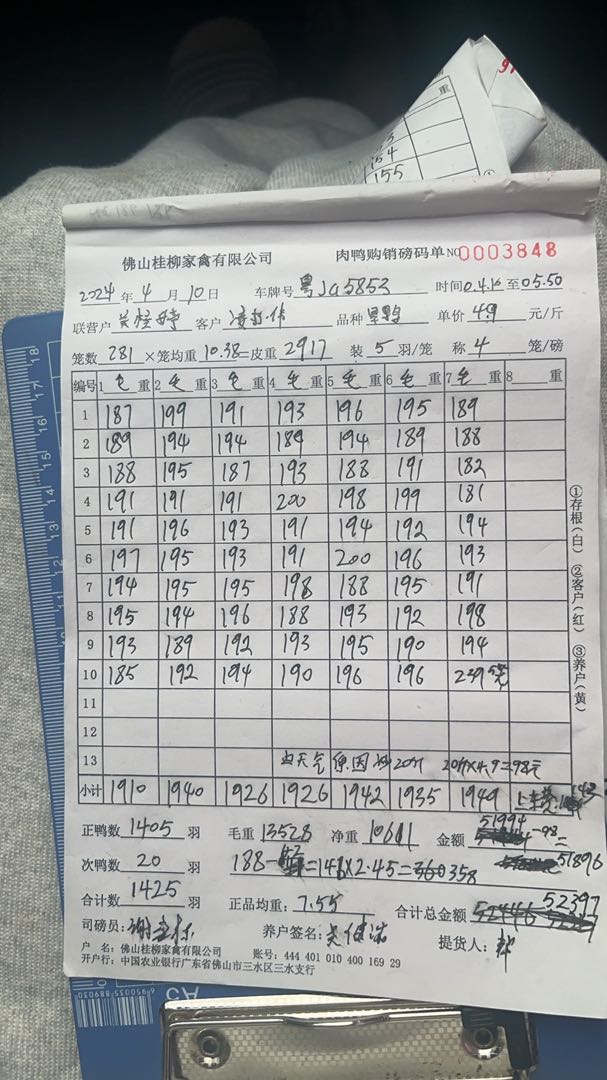 重
154
155
佛山桂柳家禽有限公司 肉鸭购销磅码单 NO 0003848
2024年4月10日 车牌号 粤JG5853 时间 04.15 至 05.50
联营户 客户 品种 单价 4.9 元/斤
笼数 281 ×笼均重 10.38=皮重 2917 装 5 羽/笼 称 4 笼/磅
编号 1 毛 重 2 毛 重 3 毛 重 4 毛 重 5 毛 重 6 毛 重 7 毛 重 8 重
1 187 199 191 193 196 195 189
2 189 194 194 189 194 189 188
3 188 195 187 193 188 191 182
4 191 191 191 200 198 199 181
5 191 196 193 191 194 192 194
6 197 195 193 191 200 196 193
7 194 195 195 198 188 195 191
8 195 194 196 188 193 192 198
9 193 189 192 193 195 190 194
10 185 192 194 190 196 196 239 5笼
11
12
13 天气原因 20斤 20斤×4.9=98元
小计 1910 1940 1926 1926 1942 1935 1949
正鸭数 1405 羽 毛重 13528 净重 10611 金额 51994 -98=
次鸭数 20 羽 188- ×2.45= 358 51896
合计数 1425 羽 正品均重: 7.55 合计总金额 52397
司磅员: 养户签名: 提货人:
户 名: 佛山桂柳家禽有限公司 账号: 444 401 010 400 169 29
开户行: 中国农业银行广东省佛山市三水区三水支行
①存根(白) ②客户(红) ③养户(黄)
18
17
16
15
14
13
12
11
A5